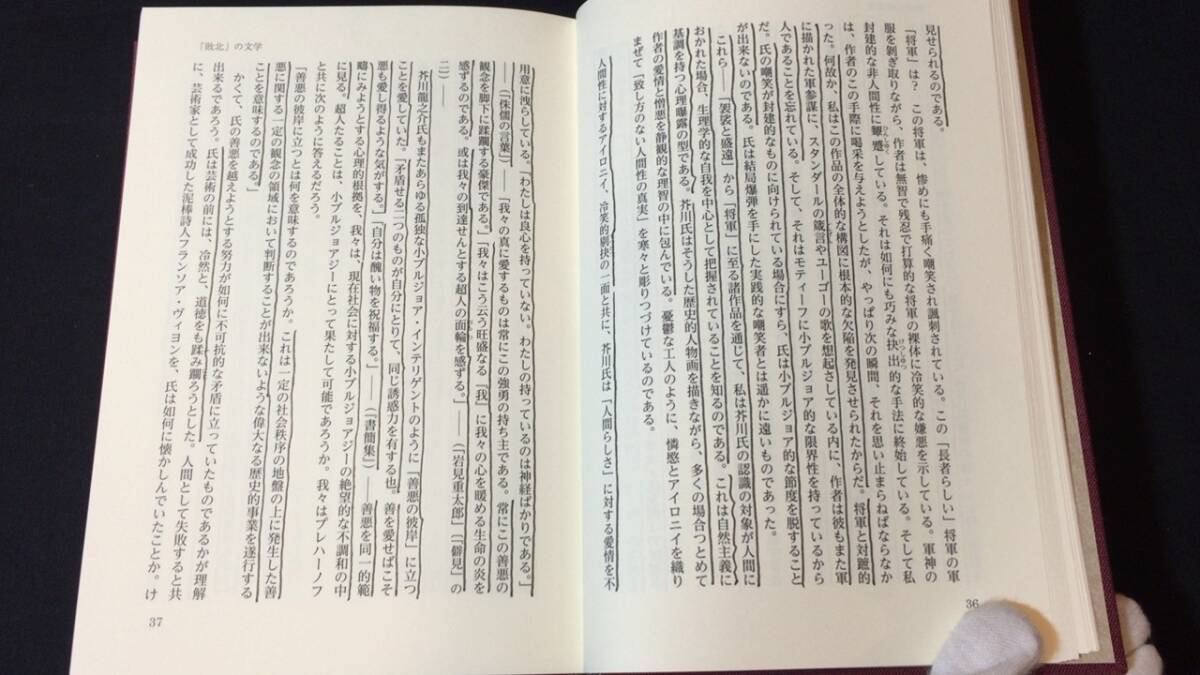 見せられるのである。
「将軍」は？　この将軍は、惨めにも手痛く嘲笑され諷刺されている。この「長者らしい」将軍の軍
服を剝ぎ取りながら、作者は無智で残忍で打算的な将軍の裸体に冷笑的な嫌悪を示している。軍神の
封建的な非人間性に顰蹙している。それは如何にも巧みな抉出的な手法に終始している。そして私
は、作者のこの手際に喝采を与えようとしたが、やっぱり次の瞬間、それを思い止まらねばならなか
った。何故か、私はこの作品の全体的な構図に根本的な欠陥を発見させられたからだ。将軍と対蹠的
に描かれた軍参謀に、スタンダールの箴言やユーゴーの歌を想起さしている内に、作者は彼もまた軍
人であることを忘れている。そして、それはモティーフに小ブルジョア的な限界性を持っているから
だ。氏の嘲笑が封建的なものに向けられている場合にすら、氏は小ブルジョア的な節度を脱すること
が出来ないのである。氏は結局爆弾を手にした実践的な嘲笑者とは遥かに遠いものであった。
これら――「袈裟と盛遠」から「将軍」に至る諸作品を通じて、私は芥川氏の認識の対象が人間に
おかれた場合、生理学的な自我を中心として把握されていることを知るのである。これは自然主義に
基調を持つ心理曝露の型である。芥川氏はそうした歴史的人物画を描きながら、多くの場合つとめて
作者の愛情と憎悪を静観的な理智の中に包んでいる。憂鬱な工人のように、憐愍とアイロニイを織り
まぜて「致し方のない人間性の真実」を寒々と彫りつづけているのである。
人間性に対するアイロニイ、冷笑的剔抉の一面と共に、芥川氏は「人間らしさ」に対する愛情を不
36
『敗北』の文学
用意に洩らしている。「わたしは良心を持っていない。わたしの持っているのは神経ばかりである。」
――(「侏儒の言葉」)――「我々の真に愛するものは常にこの強勇の持ち主である。常にこの善悪の
観念を脚下に蹂躙する豪傑である。」「我々はこう云う旺盛なる「我」に我々の心を暖める生命の炎を
感ずるのである。或は我々の到達せんとする超人の面輪を感ずる。」――(「岩見重太郎」(「僻見」の
二))――
芥川龍之介氏もまたあらゆる孤独な小ブルジョア・インテリゲントのように「善悪の彼岸」に立つ
ことを愛していた。「矛盾せる二つのものが自分にとりて、同じ誘惑力を有する也。善を愛せばこそ
悪も愛し得るような気がする。」「自分は醜い物を祝福する。」――(「書簡集」)――善悪を同一的範
疇にみようとする心理的根拠を、我々は、現在社会に対する小ブルジョアジーの絶望的な不調和の中
に見る。超人たることは、小ブルジョアジーにとって果たして可能であろうか。我々はプレハーノフ
と共に次のように答えるだろう。
「善悪の彼岸に立つとは何を意味するのであろうか。これは一定の社会秩序の地盤の上に発生した善
悪に関する一定の観念の領域において判断することが出来ないような偉大なる歴史的事業を遂行する
ことを意味するのである。」
かくて、氏の善悪を越えようとする努力が如何に不可抗的な矛盾に立っていたものであるかが理解
出来るであろう。氏は芸術の前には、冷然と、道徳をも蹂み躙ろうとした。人間として失敗すると共
に、芸術家として成功した泥棒詩人フランソア・ヴィヨンを、氏は如何に懐かしんでいたことか。け
37